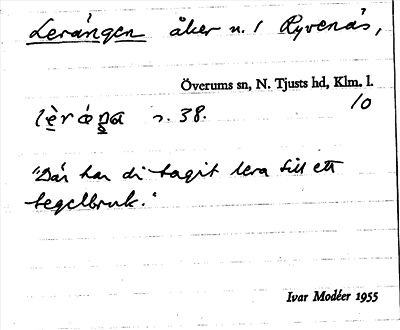 Lerängen åker n. 1 Ryvenäs,
Överums sn, N. Tjusts hd, Klm. l.
10
n. 38.
"Där har di tagit lera till ett
tegelbruk."
Ivar Modéer 1955